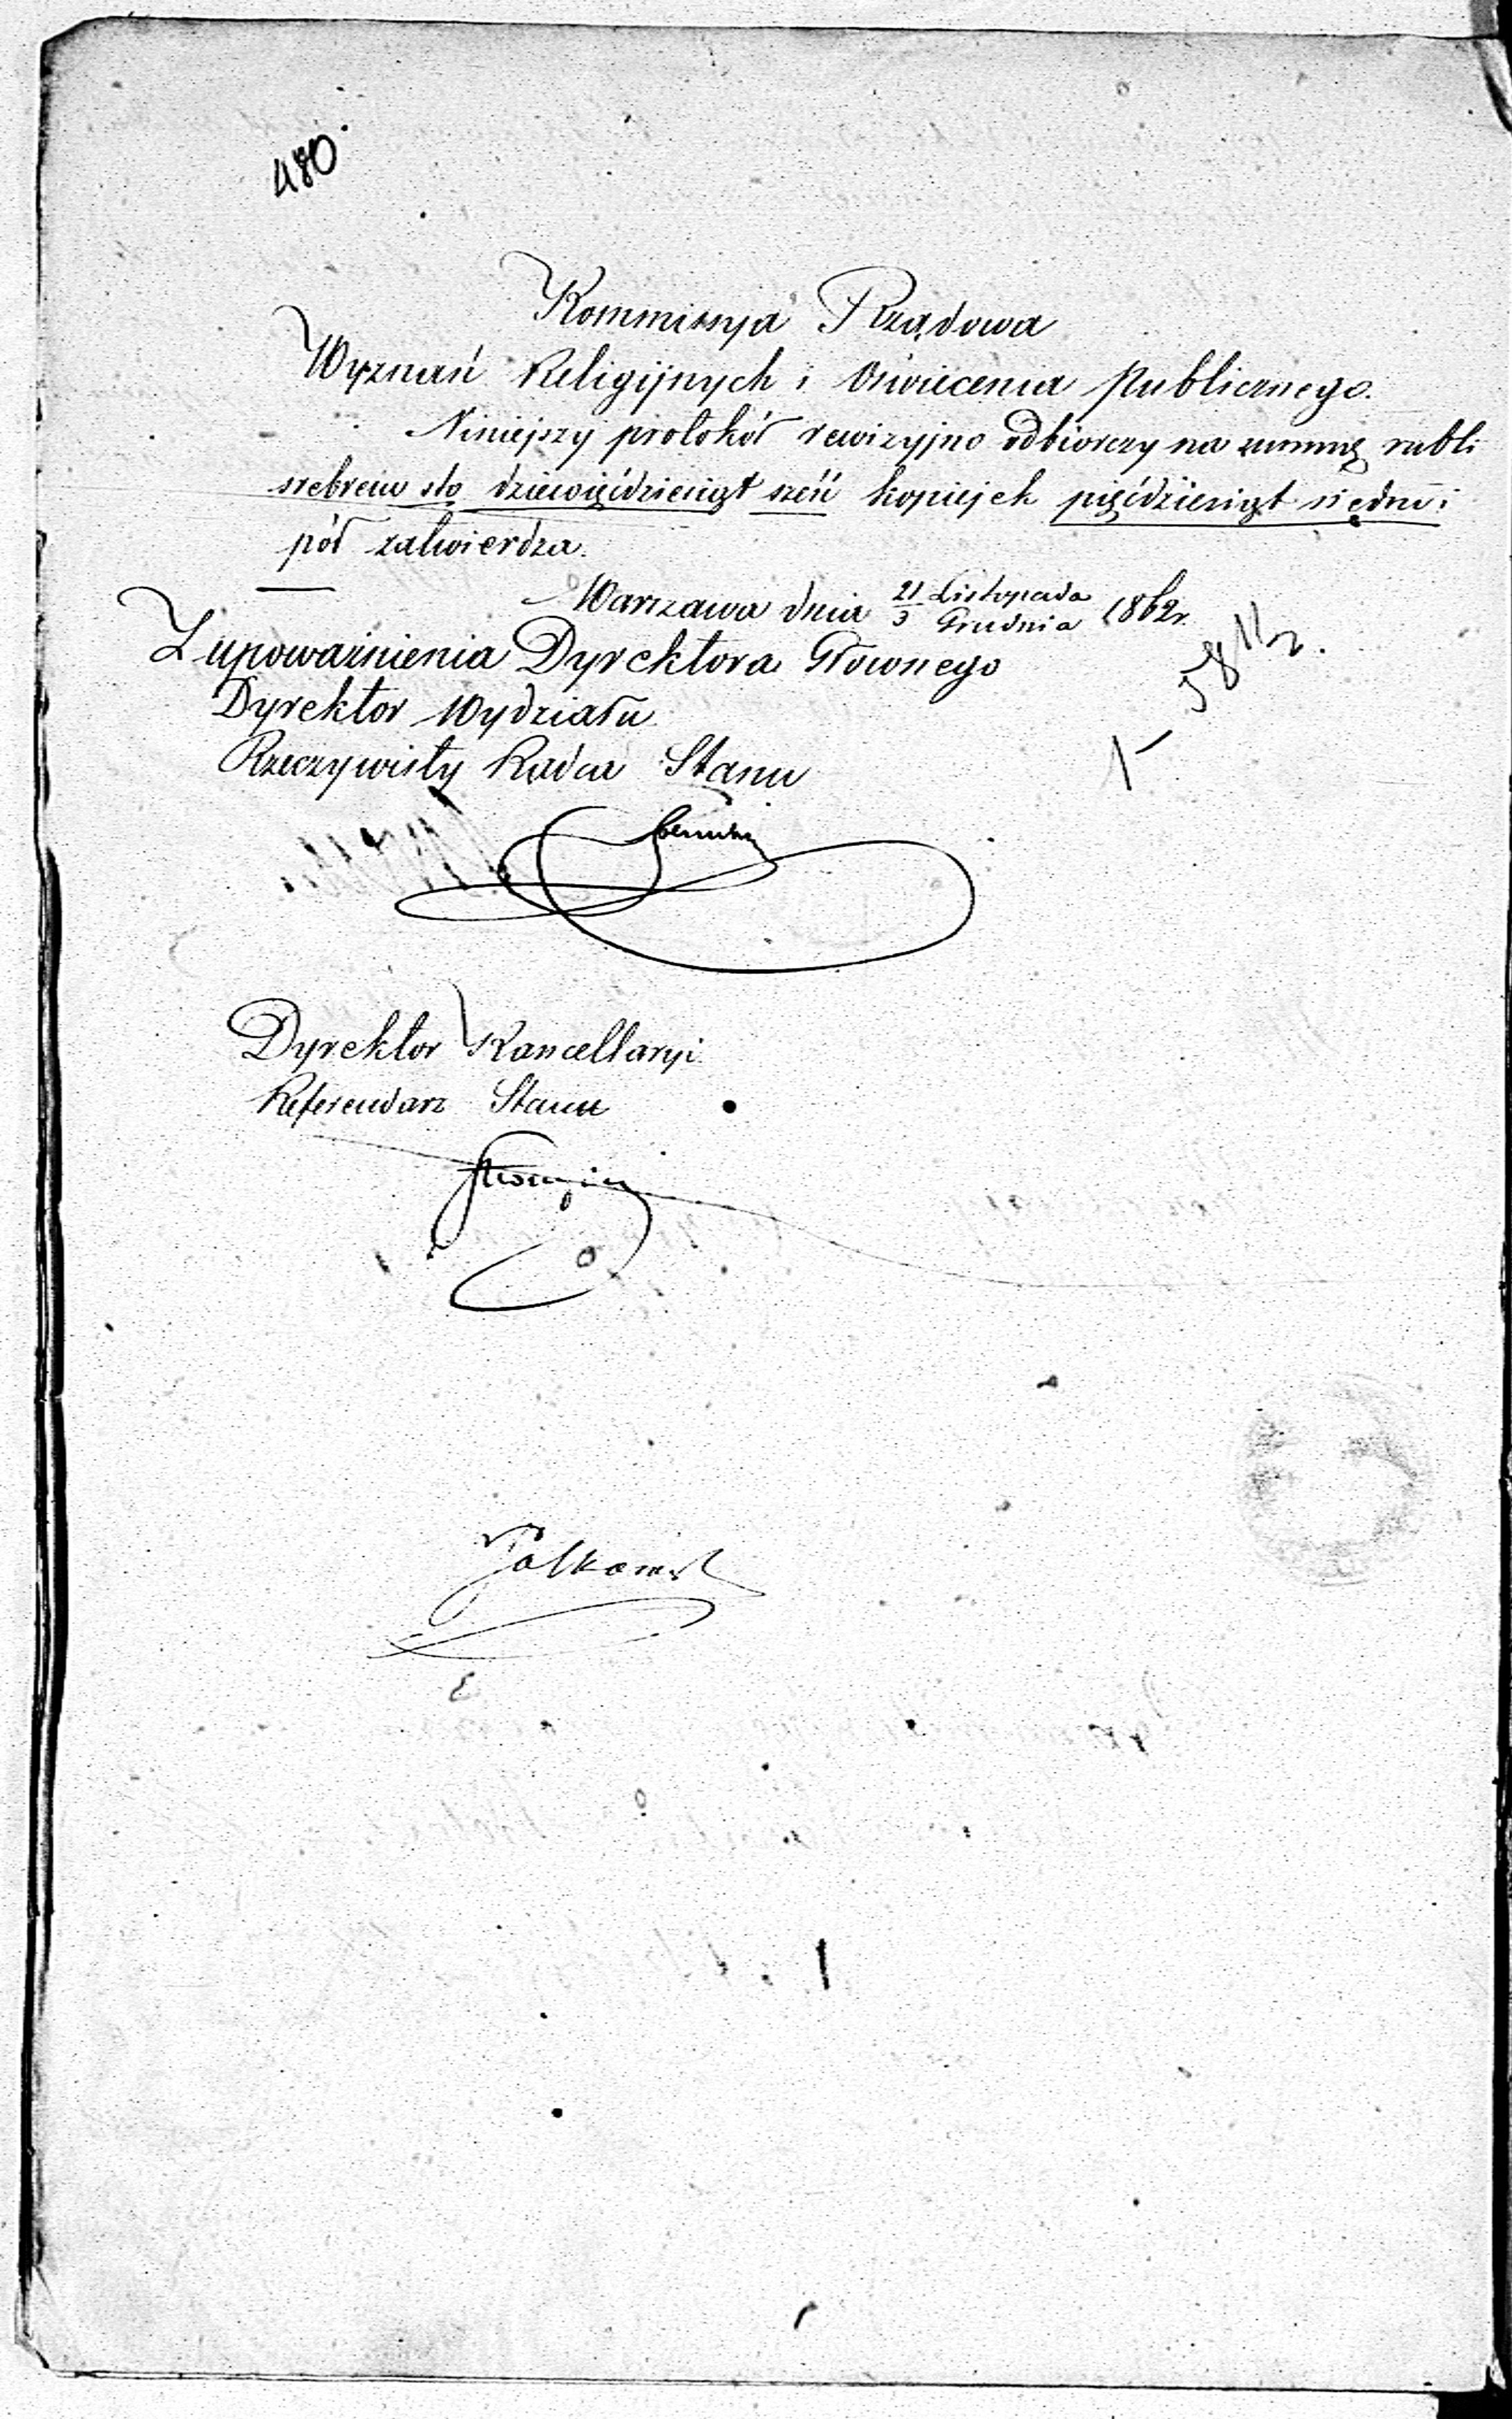 480
Kommissya Rządowa
Wyznań Religijnych i Oświecenia Publicznego.
Niniejszy protokół rewizyjno odbiorczy na summę rubli
srebrem sto dziewięćdziesiąt sześć kopiejek pięćdziesiąt siedm i
pół zatwierdza.
Warszawa dnia 21 Listopada / 3 Grudnia 1862 r.
Z upoważnienia Dyrektora Głownego
Dyrektor Wydziału
Rzeczywisty Radca Stanu
Dyrektor Kancellaryi
Referendarz Stanu